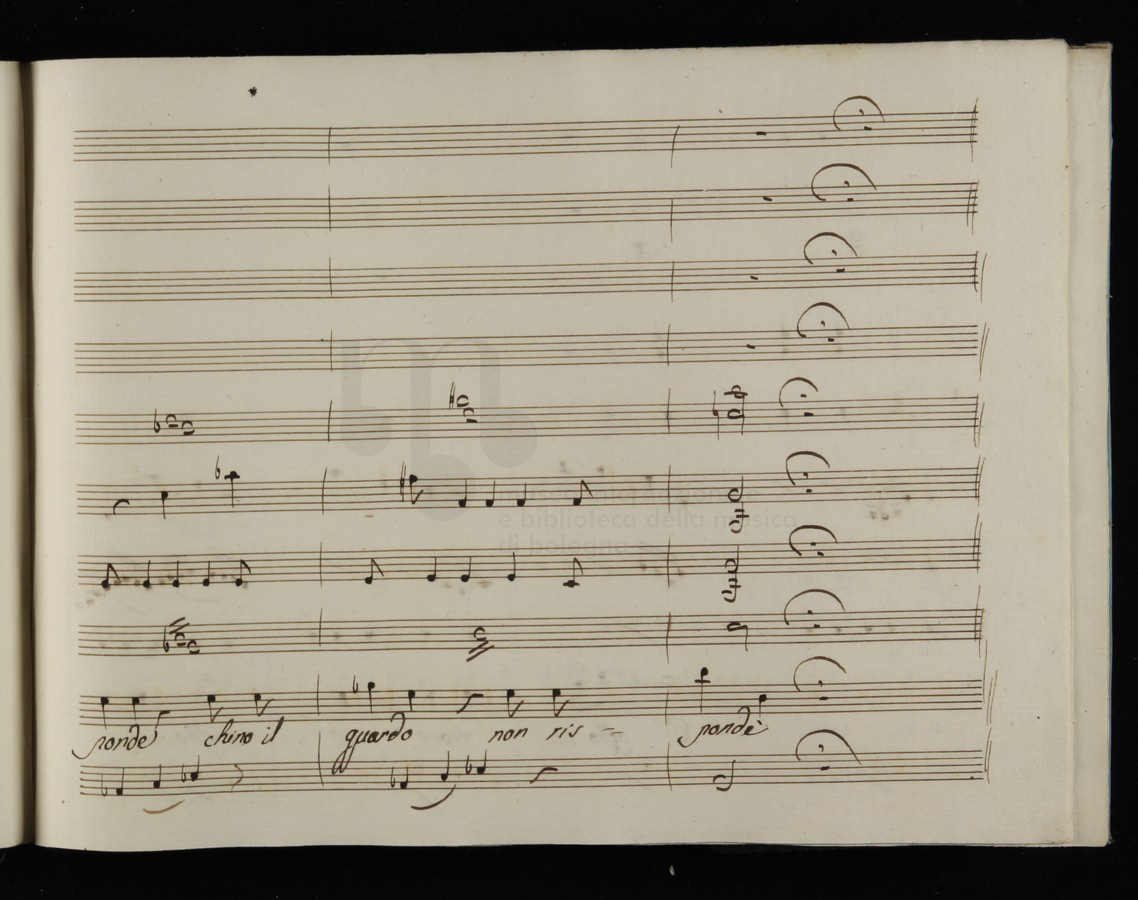 museo internazionale
e biblioteca della musica
di bologna
sponde chino il guardo non ris - - ponde